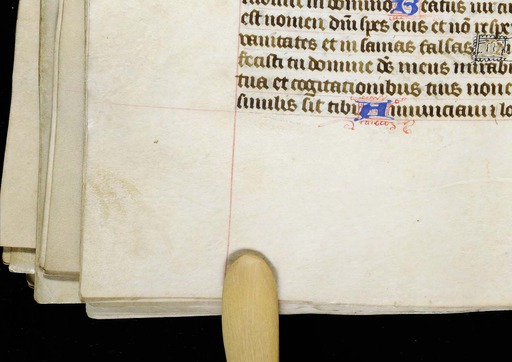 in domino Beatus uir cu
est nomen dñi spes eius et nō respex
uanitates et in sanias falsas
fecisti tu domine ds meus mirabi
tua et cogitationibus tuis non e
similis sit tibi Annunciaui